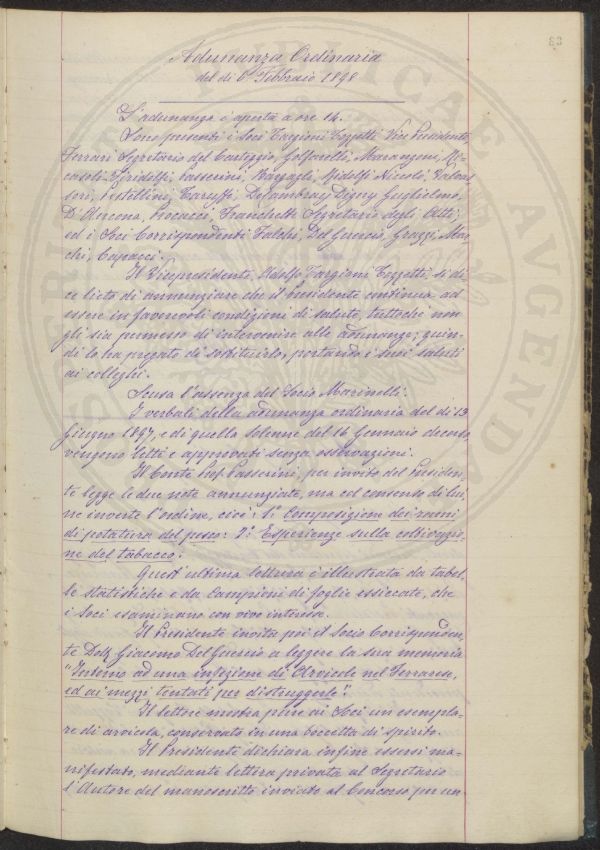 83
Adunanza Ordinaria
del dì 6 Febbraio 1898
L'adunanza è aperta a ore 14.
Sono presenti i Soci Targioni Tozzetti Vice Presidente,
Ferrari Segretario del Carteggio, Golfarelli, Marangoni, Ri-
casoli Firidolfi, Passerini, Bargagli, Ridolfi Nicolò, Valvas
sori, Pestellini, Caruffi, De Cambray Digny Guglielmo,
D'Ancona, Procacci, Franchetti Segretario degli Atti;
ed i Soci Corrispondenti Falchi, Del Guercio, Grazzi, Mar
chi, Capacci.
Il Vicepresidente, Adolfo Targioni Tozzetti, si di-
ce lieto di annunziare che il Presidente continua ad
essere in favorevoli condizioni di salute, tuttochè non
gli sia permesso di intervenire alle adunanze; quin-
di lo ha pregato di sostituirlo, portando i suoi saluti
ai colleghi.
Scusa l'assenza del Socio Marinelli.
I verbali della adunanza ordinaria del dì 13
Giugno 1897, e di quella solenne del 16 Gennaio decorso
vengono letti e approvati senza osservazioni.
Il Conte Prof. Passerini, per invito del Presiden-
te legge le due note annunziate, ma col consenso di lui,
ne inverte l'ordine, cioè: 1º Composizione dei rami
di potatura del pesco: 2º Esperienze sulla coltivazio-
ne del tabacco.
Quest'ultima lettura è illustrata da tabel-
le statistiche e da campioni di foglie essiccate, che
i Soci esaminano con vivo interesse.
Il Presidente invita poi il Socio Corrisponden-
te Dott. Giacomo Del Guercio a leggere la sua memoria
"Intorno ad una infezione di Arvicole nel Ferrarese,
ed ai mezzi tentati per distruggerle".
Il lettore mostra pure ai Soci un esempla-
re di arvicola, conservato in una boccetta di spirito.
Il Presidente dichiara infine essersi ma-
nifestato, mediante lettera privata al Segretario
l'Autore del manoscritto inviato al Concorso per un